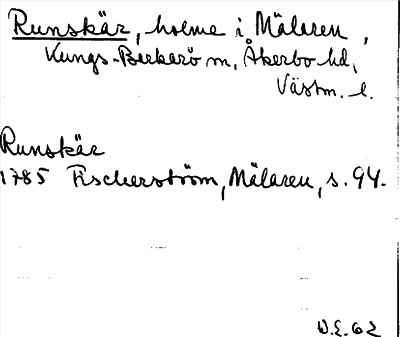 Runskär, holme i Mälaren,
Kungs-Barkarö sn, Åkerbo hd,
Västm. l.
Runskär
1785 Fischerström, Mälaren, s. 94.
D.E. 62